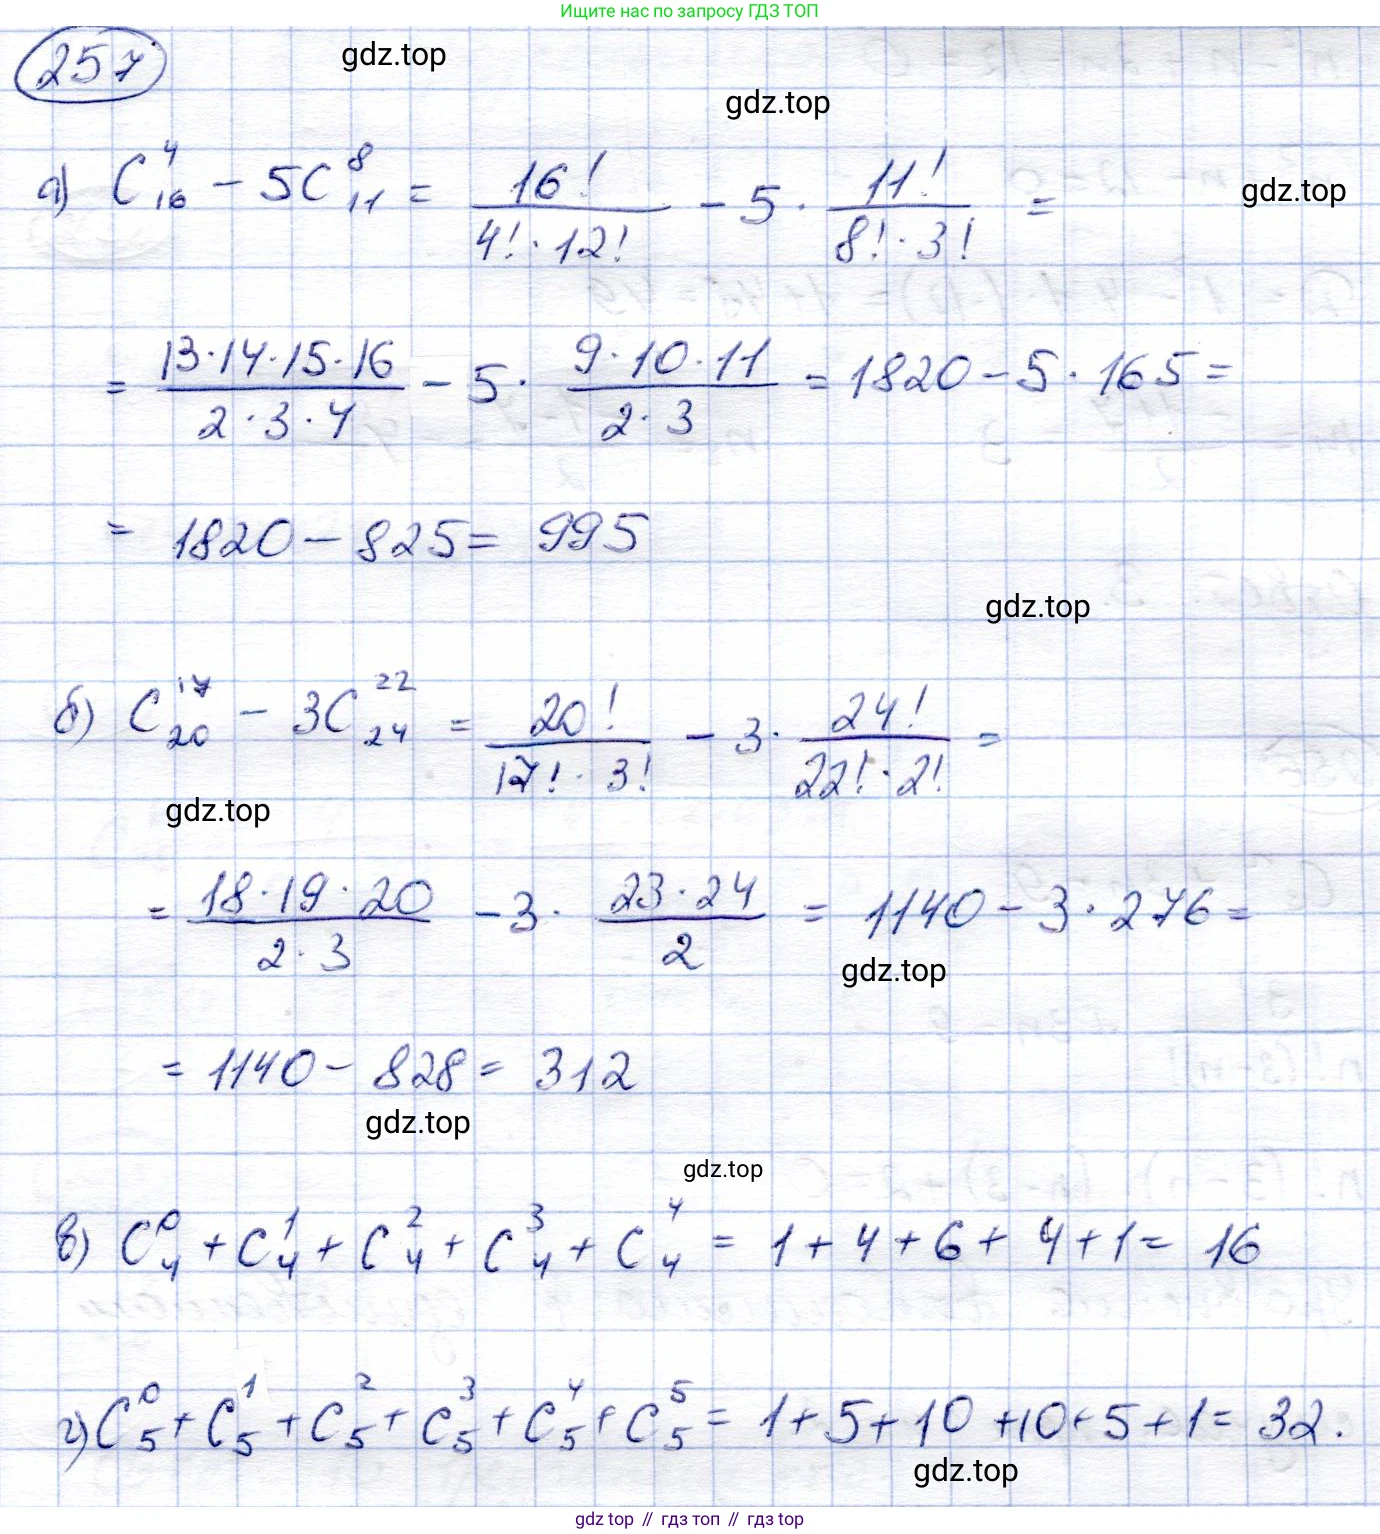 Ищите нас по запросу ГДЗ ТОП
257
gdz.top
gdz.top
gdz.top
а) C₁₆⁴ - 5C₁₁⁸ = 16!/(4!·12!) - 5 · 11!/(8!·3!) =
= (13·14·15·16)/(2·3·4) - 5 · (9·10·11)/(2·3) = 1820 - 5 · 165 =
= 1820 - 825 = 995
gdz.top
б) C₂₀¹⁷ - 3C₂₄²² = 20!/(17!·3!) - 3 · 24!/(22!·2!) =
gdz.top
= (18·19·20)/(2·3) - 3 · (23·24)/2 = 1140 - 3 · 276 =
gdz.top
= 1140 - 828 = 312
gdz.top
gdz.top
в) C₄⁰ + C₄¹ + C₄² + C₄³ + C₄⁴ = 1 + 4 + 6 + 4 + 1 = 16
г) C₅⁰ + C₅¹ + C₅² + C₅³ + C₅⁴ + C₅⁵ = 1 + 5 + 10 + 10 + 5 + 1 = 32.
gdz.top
gdz top // гдз топ // гдз top